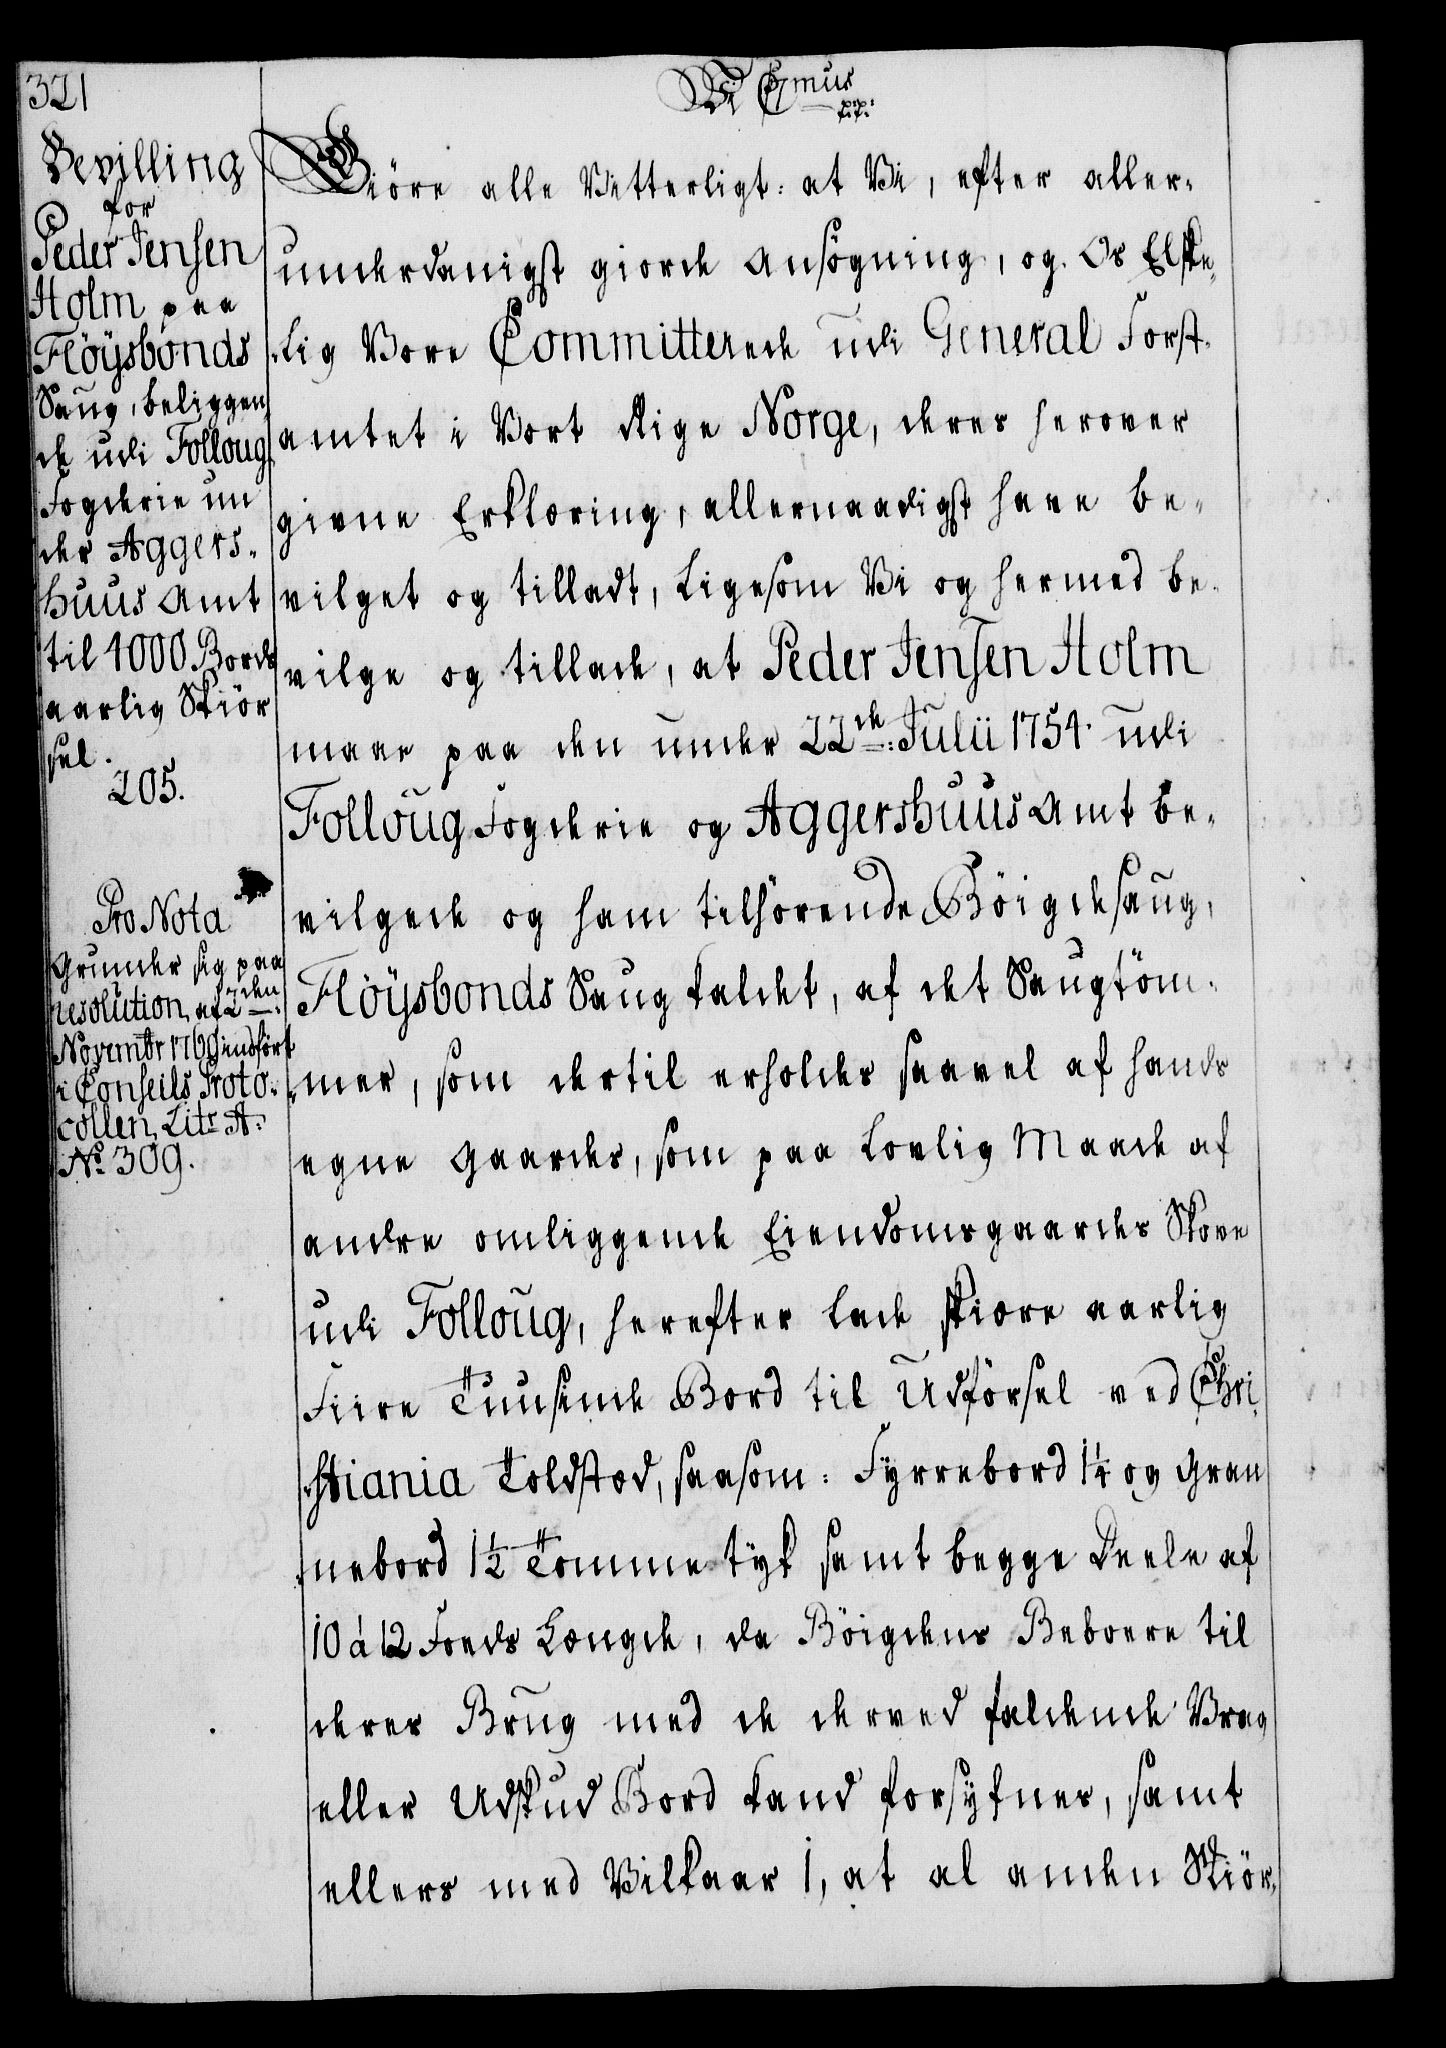 321
Bevilling
for
Peder Jensen
Holm paa
Flöÿsbonds
Saug, beliggen
de udi Folloug
Fogderie un
der Aggers-
huus Amt
til 4000 Bords
aarlig Skiör
sel.
205.
Pro Nota
Grunder sig paa
resolution, af 2den
Novembr 1760 indfört
i Conseils Proto-
collen, Litr A.
No 309.
Vi Cmus
p.p:
Giöre alle Vitterligt: at Vi, efter aller-
underdanigst giorde Ansögning, og Os Elske-
lig Vore Committerede udi General Forst-
amtet i Vort Rige Norge, deres herover
givne Erklæring, allernaadigst have be-
vilget og tilladt, ligesom Vi og hermed be-
vilge og tillade, at Peder Jensen Holm
maae paa den under 22de Julii 1754 udi
Folloug Fogderie og Aggershuus Amt be-
vilgede og ham tilhörende Böigdesaug,
Flöÿsbonds Saug kaldet, af det Saugtöm-
mer, som dertil erholdes saavel af hands
egne Gaarder, som paa lovlig Maade af
andre omliggende Eiendomsgaarders Skove
udi Folloug, herefter lade skiære aarlig
Fiire Tuusinde Bord til Udförsel ved Chri-
stiania Toldstæd, saasom: Fyrrebord 1¼ og Gran
nebord 1½ Tomme tyk samt begge Deele af
10 á 12 Foeds Længde, da Böigdens Beboere til
deres Brug med de derved faldende Vrag
eller Udskud Bord kand forsyfnes, samt
ellers med Vilkaar 1, at al anden Skiör-